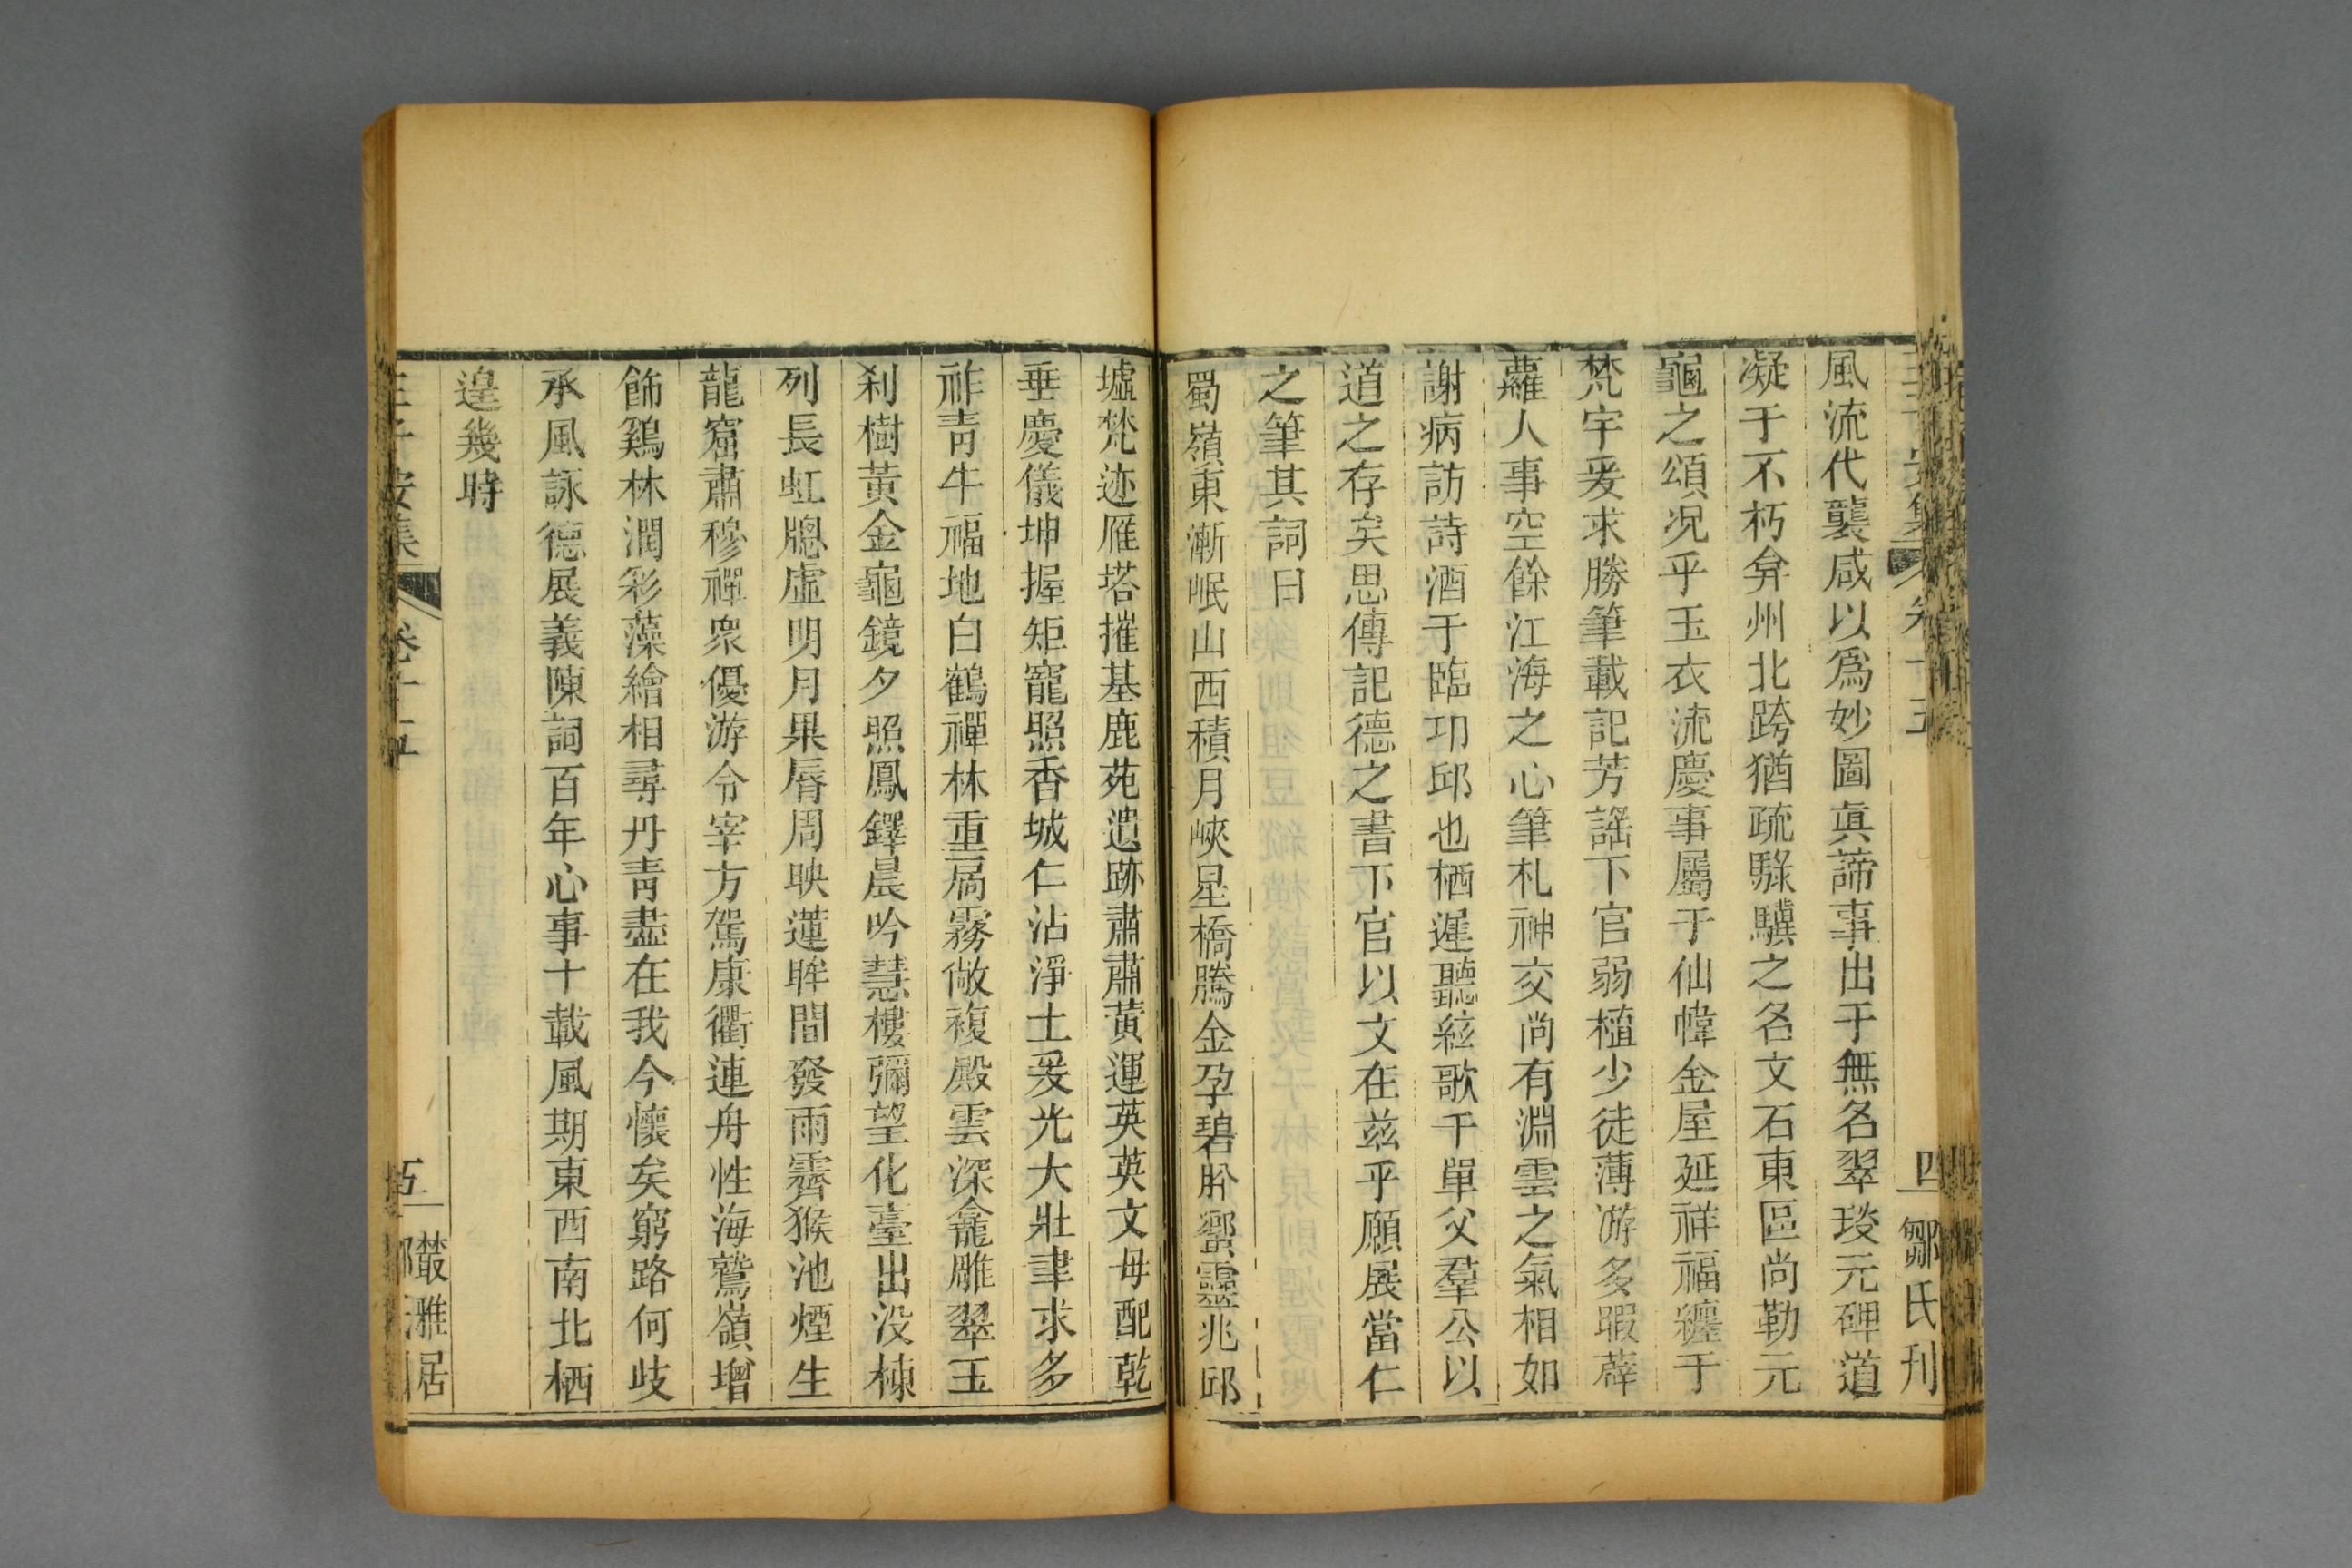 風流代襲咸以爲妙圖眞諦事出于無名翠琰元碑道
凝于不朽弇州北跨猶疏騄驥之名文石東區尚勒元
龜之頌况乎玉衣流慶事屬于仙幃金屋延祥福纏于
梵宇爰求勝筆載記芳謡下官弱植少徒薄游多暇薜
蘿人事空餘江海之心筆札神交尚有淵雲之氣相如
謝病訪詩酒于臨邛邱也栖遲聽絃歌于單父羣公以
道之存矣思傳記德之書下官以文在兹乎願展當仁
之筆其詞曰
蜀嶺東漸岷山西積月峽星橋騰金孕碧肸蠁靈兆邱
墟梵迹雁塔摧基鹿苑遺跡肅肅黄運英英文母配乾
垂慶儀坤握矩寵照香城仁沾淨土爰光大壯聿求多
祚青牛福地白鶴禪林重扃霧敞複殿雲深龕雕翠玉
刹樹黄金龜鏡夕照鳳鐸晨吟慧樓彌望化臺出没棟
列長虹牕虛明月果脣周映蓮眸間發雨霽猴池煙生
龍窟肅穆禪衆優游令宰方駕康衢連舟性海鷲嶺增
飾鷄林潤彩藻繪相尋丹青盡在我今懷矣窮路何歧
承風詠德展義陳詞百年心事十載風期東西南北栖
遑幾時
王子安集 卷十五 四 鄒氏刊
王子安集 卷十五 五 叢雅居